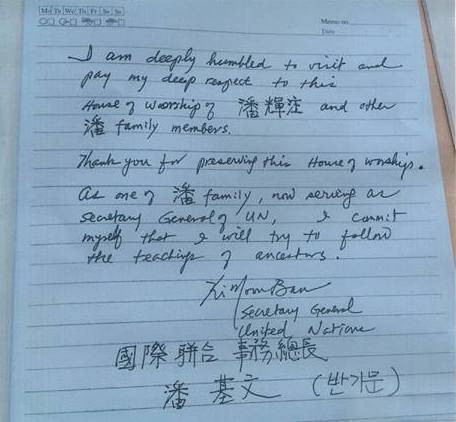 Mo Tu We Th Fr Sa Su
Memo no.
Date
I am deeply humbled to visit and
pay my deep respect to this
House of worship of 潘輝注 and other
潘 family members.
Thank you for preserving this House of worship.
As one of 潘 family, now serving as
Secretary General of UN, I commit
myself that I will try to follow
the teachings of ancestors.
Ki Moon Ban
Secretary General
United Nations
國際聯合 事務總長
潘基文 (반기문)